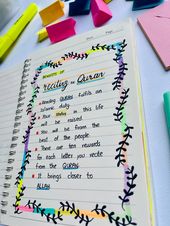 BENEFITS OF
reciting Quran
Reading QURAN fulfils an
islamic duty
Your status in this life
will be raised.
You will be from the
best of the people
There are ten rewards
for each letter you recite
from the QURAN
It brings closer to
ALLAH